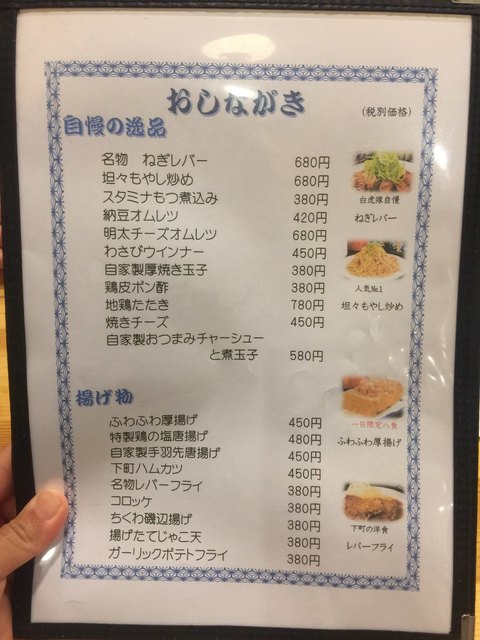 おしながき
(税別価格)
自慢の逸品
名物 ねぎレバー 680円
坦々もやし炒め 680円
スタミナもつ煮込み 380円
納豆オムレツ 420円
明太チーズオムレツ 680円
わさびウインナー 450円
自家製厚焼き玉子 380円
鶏皮ポン酢 380円
地鶏たたき 780円
焼きチーズ 450円
自家製おつまみチャーシュー
と煮玉子 580円
白虎隊自慢
ねぎレバー
人気№1
坦々もやし炒め
揚げ物
ふわふわ厚揚げ 450円
特製鶏の塩唐揚げ 480円
自家製手羽先唐揚げ 450円
下町ハムカツ 450円
名物レバーフライ 380円
コロッケ 380円
ちくわ磯辺揚げ 380円
揚げたてじゃこ天 380円
ガーリックポテトフライ 380円
一日限定八食
ふわふわ厚揚げ
下町の洋食
レバーフライ